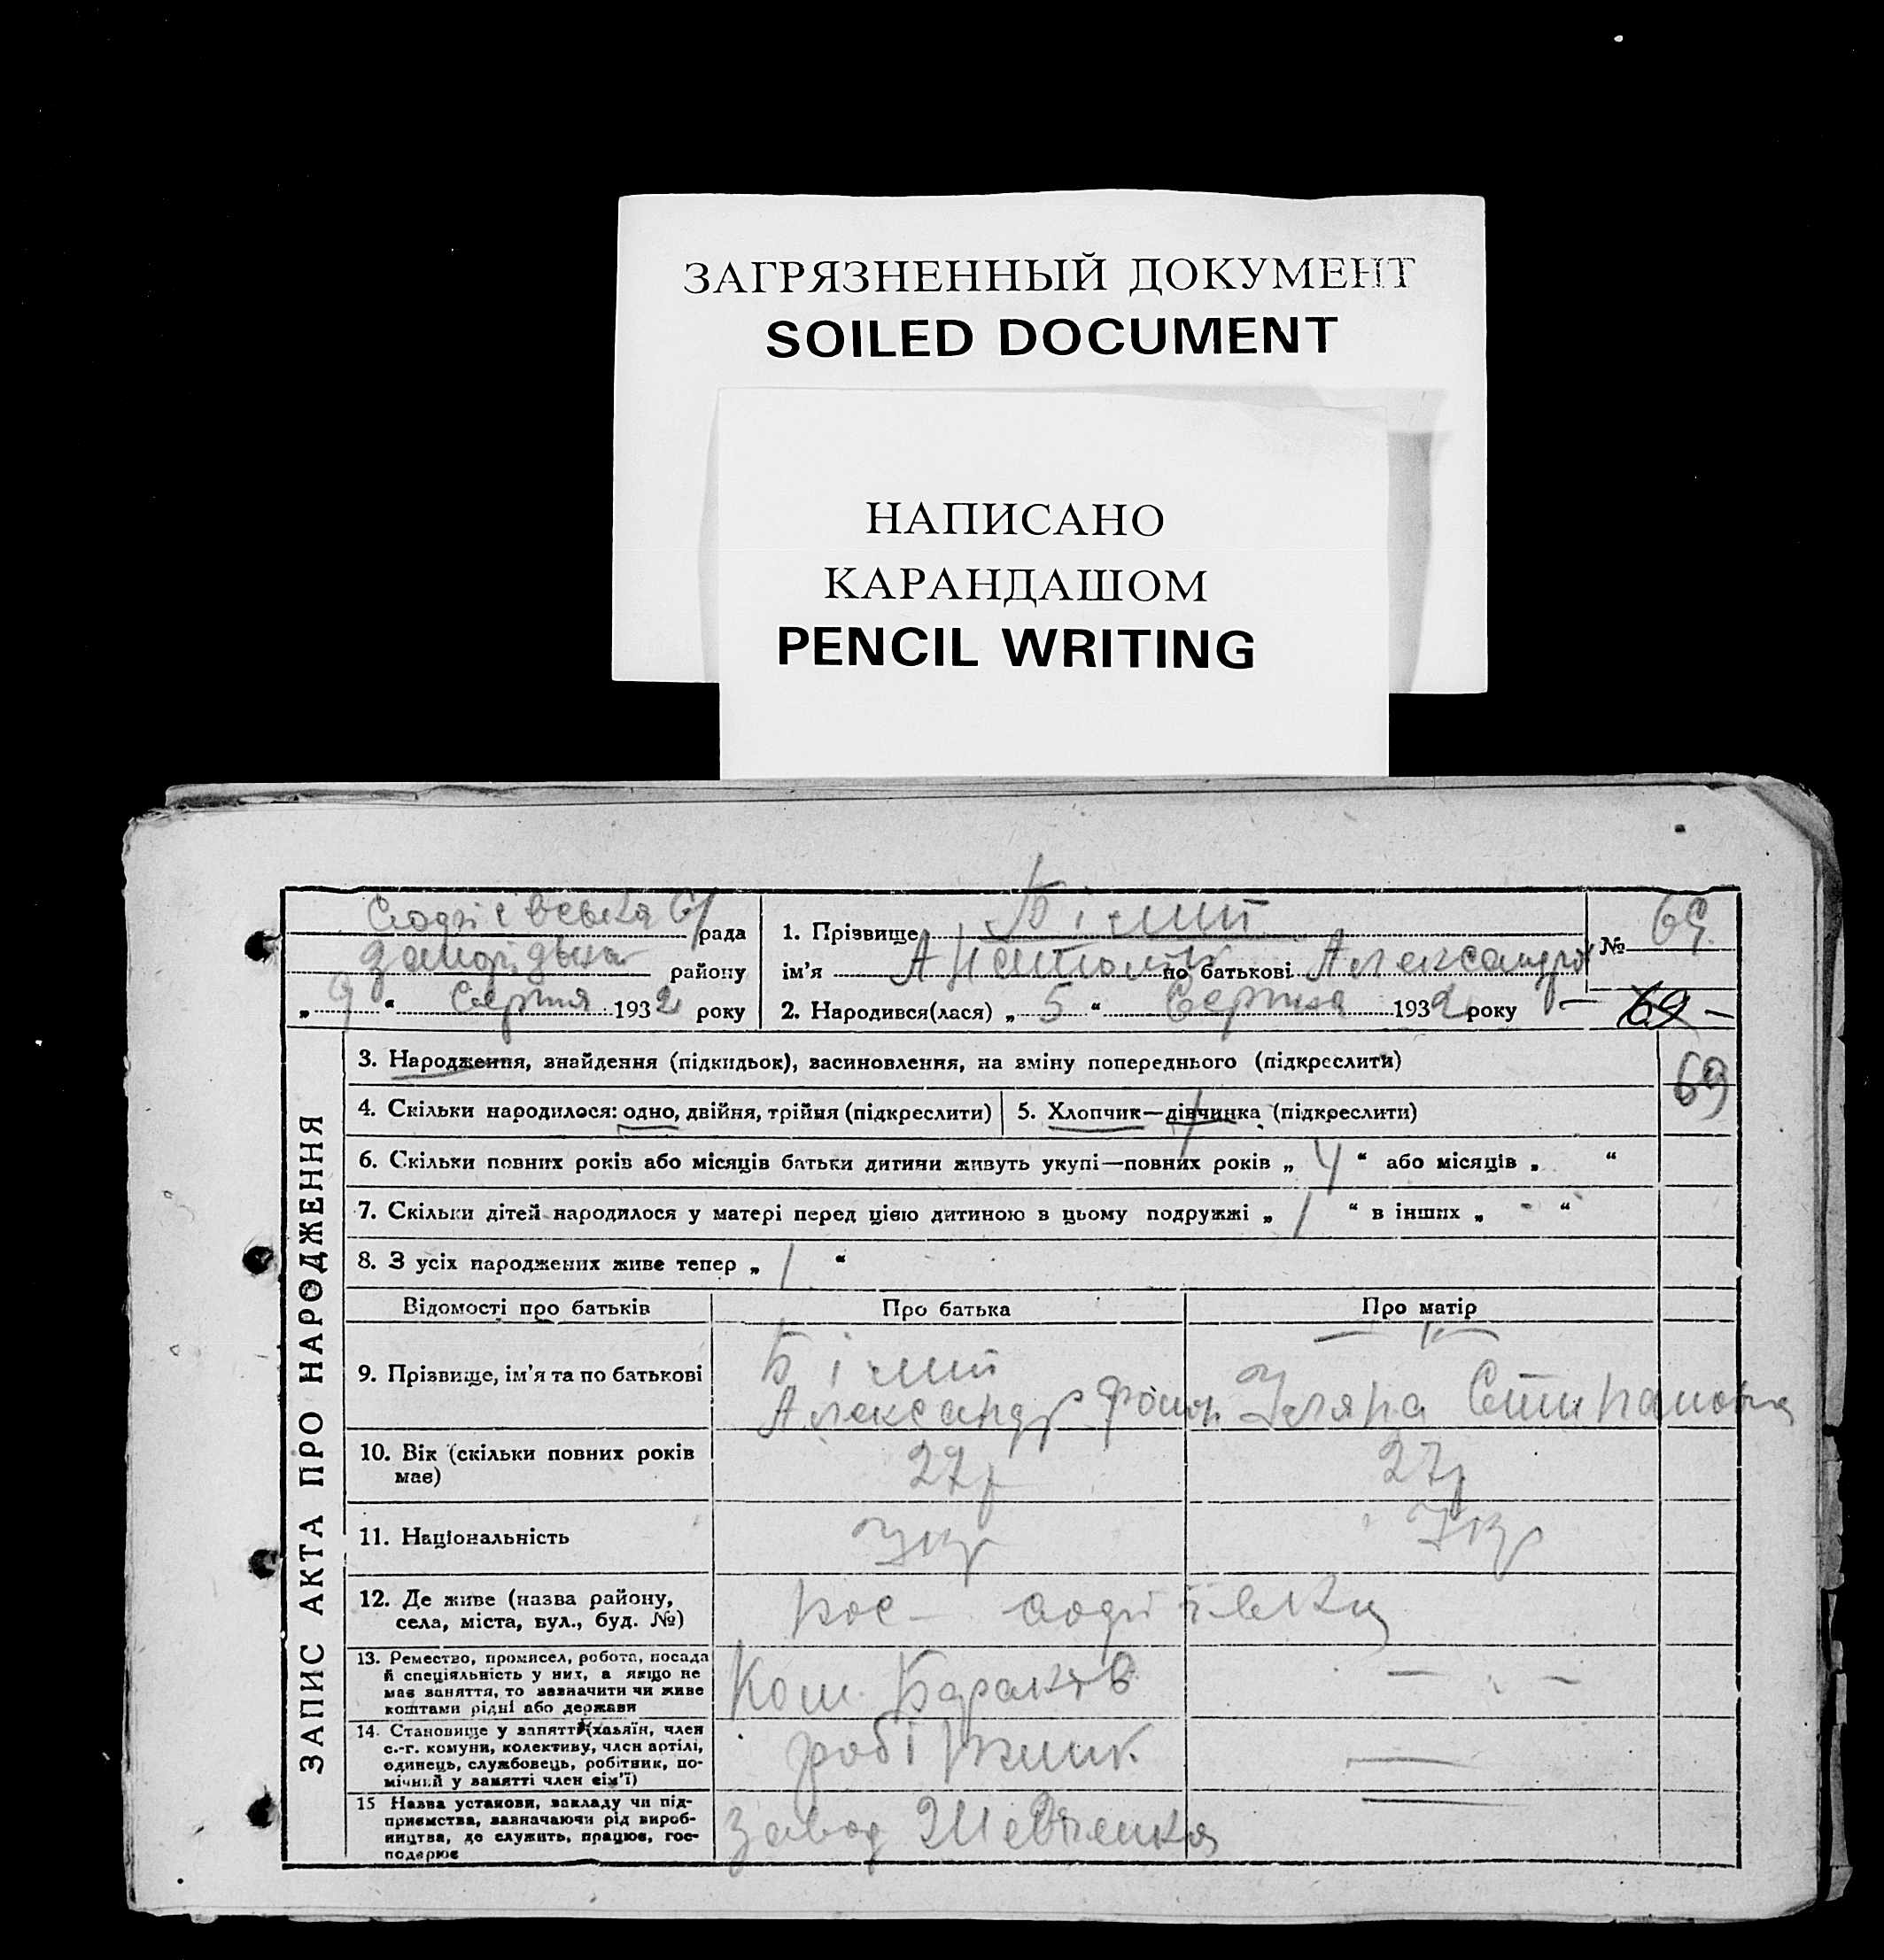 ЗАГРЯЗНЕННЫЙ ДОКУМЕНТ
SOILED DOCUMENT
НАПИСАНО
КАРАНДАШОМ
PENCIL WRITING
рада
району
„ 9 “ Серпня 1932 року
1. Прізвище Білий
ім'я Анатолій по батькові Александро
2. Народився(лася) „ 5 “ Серпня 1932 року
№ 69.
69
69
ЗАПИС АКТА ПРО НАРОДЖЕННЯ
3. Народження, знайдення (підкидьок), васиновлення, на зміну попереднього (підкреслити)
4. Скільки народилося: одно, двійня, трійня (підкреслити)
5. Хлопчик—дівчинка (підкреслити)
6. Скільки повних років або місяців батьки дитини живуть укупі—повних років „ 4 “ або місяців „ “
7. Скільки дітей народилося у матері перед цією дитиною в цьому подружжі „ 1 “ в інших „ - “
8. З усіх народжених живе тепер „ 1 “
Відомості про батьків
Про батька
Про матір
9. Прізвище, ім'я та по батькові
Білий
Александр
Уляна Степановна
10. Вік (скільки повних років
має)
27р
27р
11. Національність
Укр
Укр
12. Де живе (назва району,
села, міста, вул., буд. №)
13. Ремество, промисел, робота, посада
й спеціяльність у них, а якщо не
має заняття, то зазначити чи живе
коштами рідні або держави
14. Становище у занятті (хазяїн, член
с.-г. комуни, колективу, член артілі,
одинець, службовець, робітник, по-
мічний у занятті член сім'ї)
робітник
15 Назва установи, закладу чи під-
приємства, зазначаючи рід вироб-
ництва, де служить, працює, гос-
подарює
Завод Шевченка